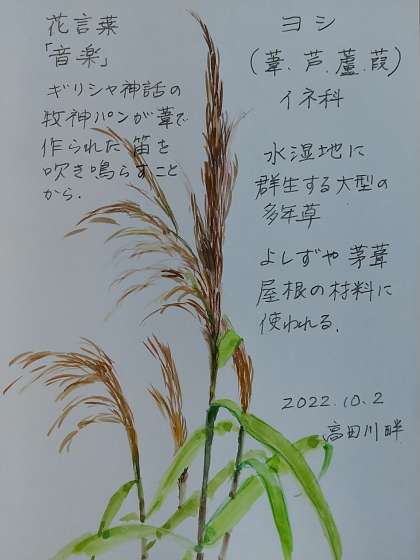 花言葉
「音楽」
ギリシャ神話の
牧神パンが葦で
作られた笛を
吹き鳴らすこと
から.
ヨシ
(葦、芦、蘆、葭)
イネ科
水湿地に
群生する大型の
多年草
よしずや茅葺
屋根の材料に
使われる.
2022.10.2
高田川畔